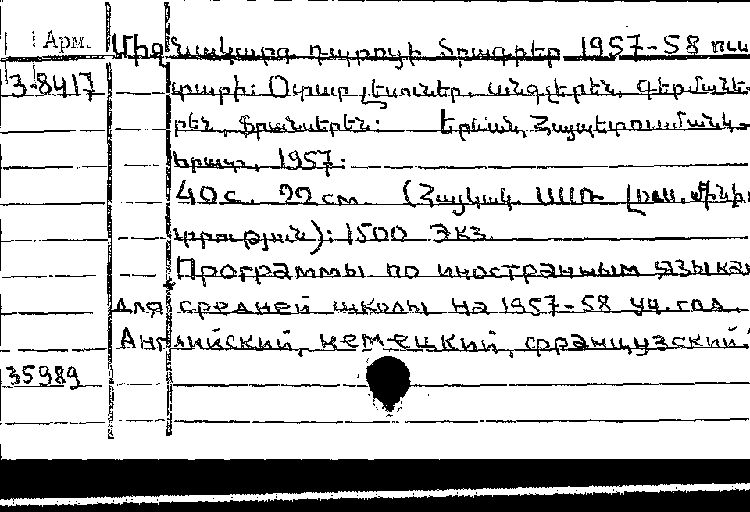 Арм. Միջնակարգ դպրոցի ծրագրեր 1957-58 ուս
3-8417 տարի: Օտար լեզուներ. անգլերեն, գերմանե-
րեն, ֆրանսերեն: Երևան, Հայպետուսմանկ-
հրատ., 1957:
40 с. 22 см. (Հայկակ. ՍՍՌ Լուս. մինիս
տրություն): 1500 экз.
Программы по иностранным языкам
для средней школы на 1957-58 уч. год.
Английский, немецкий, французский.
35989